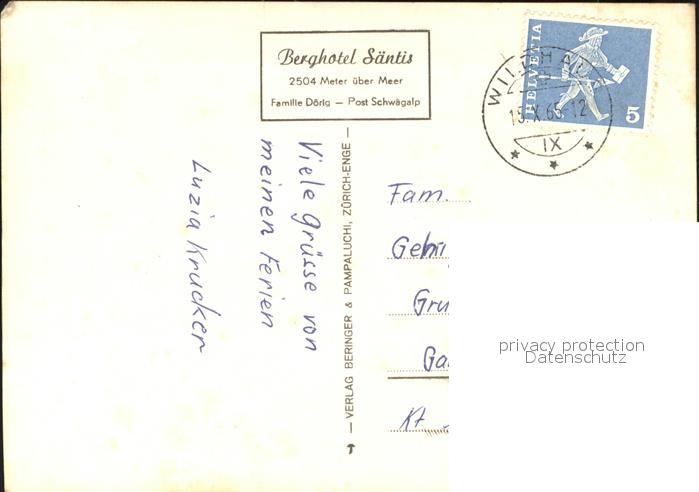 Berghotel Säntis
2504 Meter über Meer
Familie Dörig — Post Schwägalp
HELVETIA
5
15.X.66-12
IX
Viele Grüsse von
meinen Ferien
Luzia Krucker
— VERLAG BERINGER & PAMPALUCHI, ZÜRICH-ENGE —
Fam.
Kt
privacy protection
Datenschutz